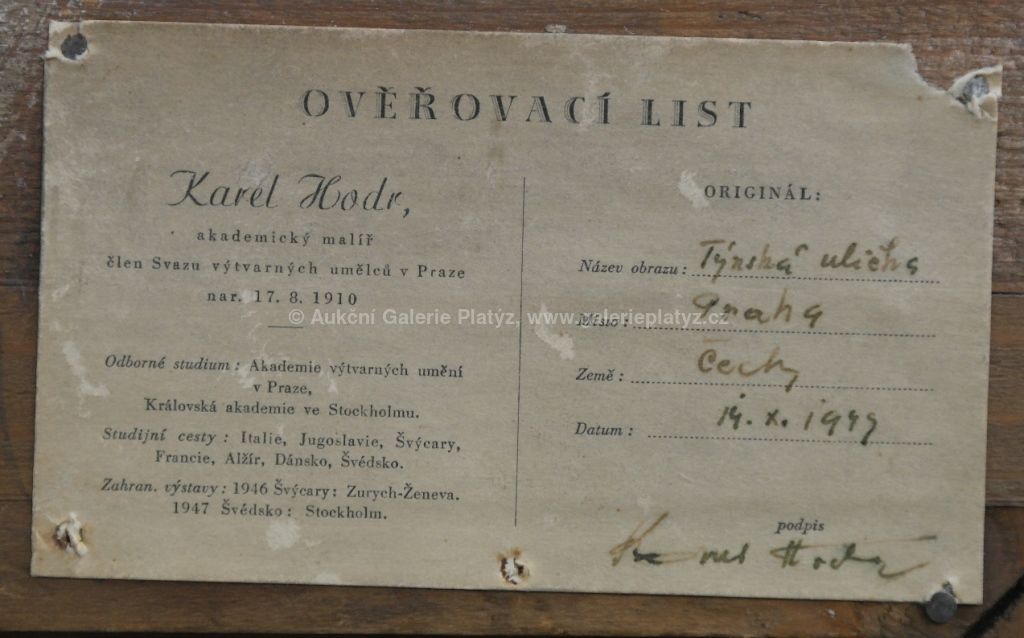 OVĚŘOVACÍ LIST
Karel Hodr,
akademický malíř
člen Svazu výtvarných umělců v Praze
nar. 17. 8. 1910
Odborné studium: Akademie výtvarných umění
v Praze,
Královská akademie ve Stockholmu.
Studijní cesty: Italie, Jugoslavie, Švýcary,
Francie, Alžír, Dánsko, Švédsko.
Zahran. výstavy: 1946 Švýcary: Zurych-Ženeva.
1947 Švédsko: Stockholm.
ORIGINÁL:
Název obrazu: Týnská ulička
Místo: Praha
Země: Čechy
Datum: 14. X. 1949
podpis
Karel Hodr
© Aukční Galerie Platýz, www.galerieplatyz.cz